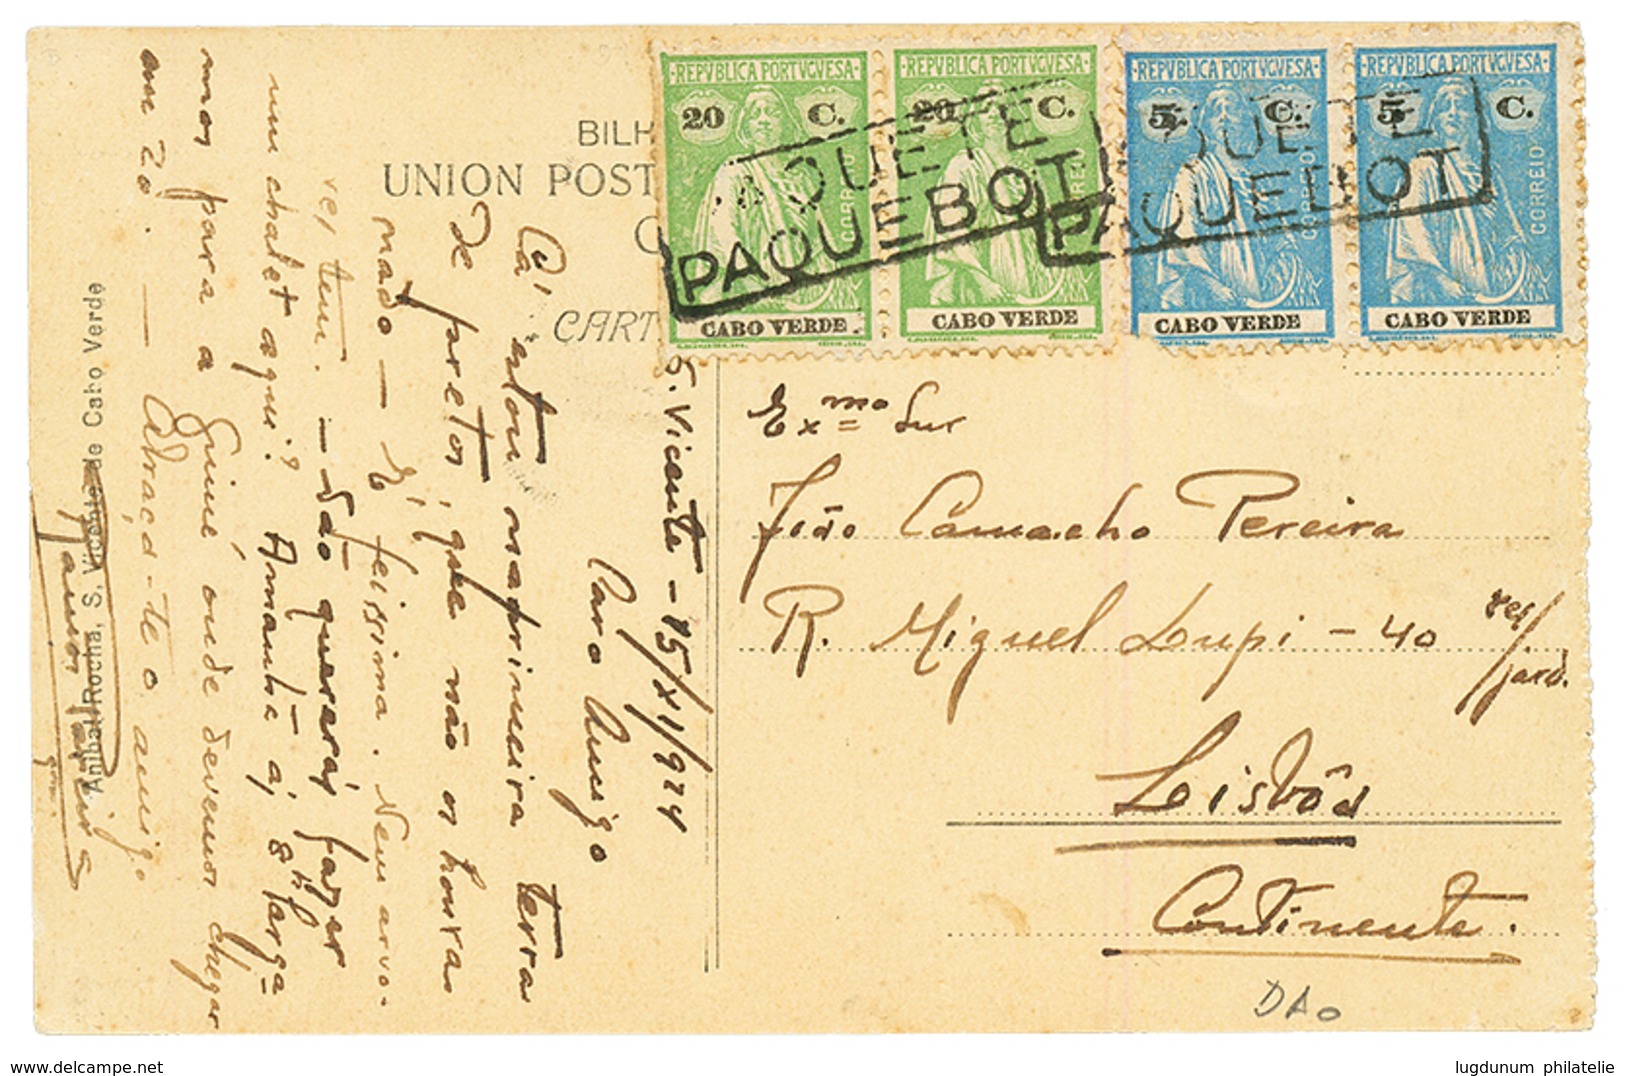 REPVBLICA PORTVGVESA
20 C.
CORREIO
CABO VERDE
REPVBLICA PORTVGVESA
20 C.
CORREIO
CABO VERDE
REPVBLICA PORTVGVESA
5 C.
CORREIO
CABO VERDE
REPVBLICA PORTVGVESA
5 C.
CORREIO
CABO VERDE
PAQUETE
PAQUEBOT
PAQUETE
PAQUEBOT
BILH
UNION POST
C
CART
S. Vicente - 15/XI/924
Caro Amigo
Cá estou na primeira terra
de pretos, que não os honras
nada — É feissima. Nem arvo-
res tem. — Não quererás fazer
um chalet aqui? Amanhã ás 8h larga
mos para a Guiné onde devemos chegar
em 20. — Abraça-te o amigo
Anibal Rocha, S. Vicente de Cabo Verde
Exmo Snr
João Camacho Pereira
R. Miguel Lupi - 40 res/
jard.
Lisbôa
Continente.
DAo
www.delcampe.net
lugdunum philatelie